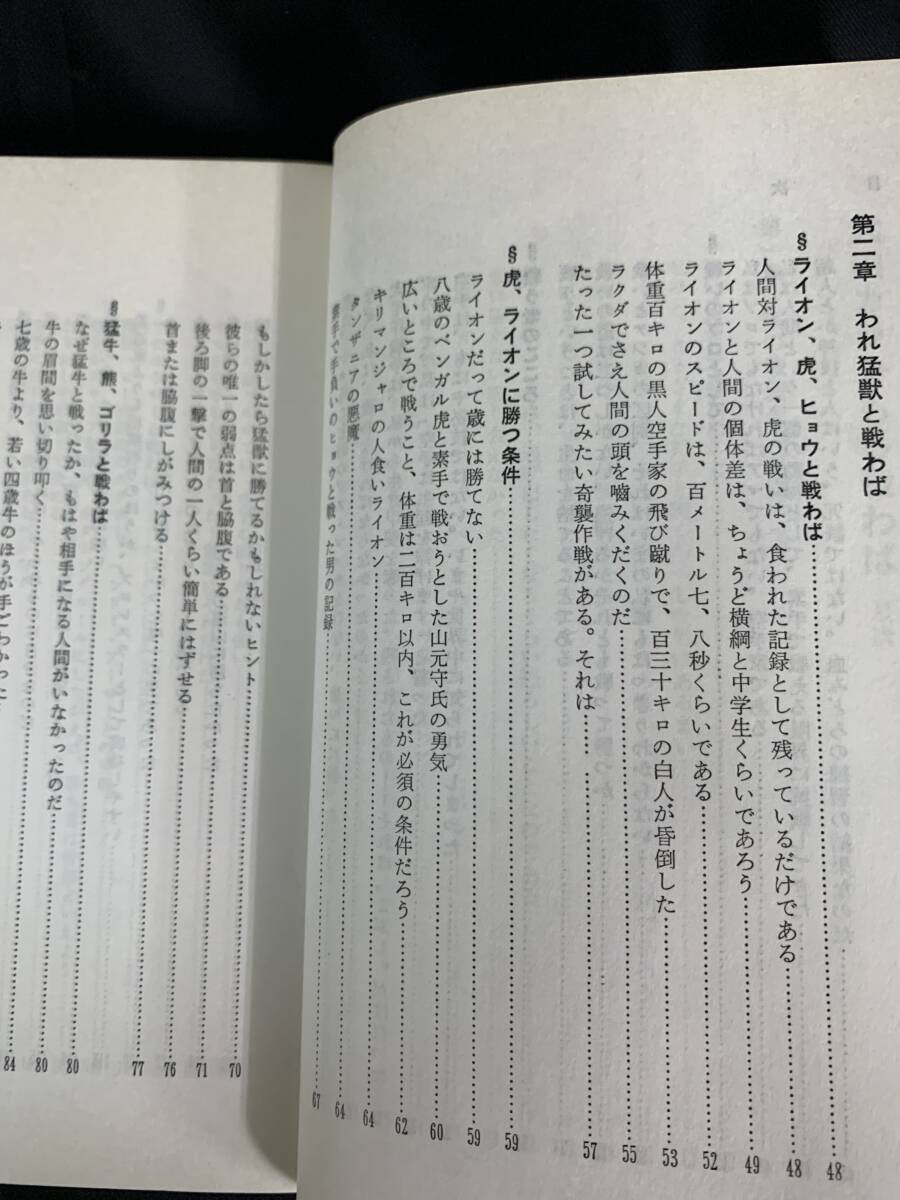 第二章 われ猛獣と戦わば
§ライオン、虎、ヒョウと戦わば……48
人間対ライオン、虎の戦いは、食われた記録として残っているだけである……48
ライオンと人間の個体差は、ちょうど横綱と中学生くらいであろう……49
ライオンのスピードは、百メートル七、八秒くらいである……52
体重百キロの黒人空手家の飛び蹴りで、百三十キロの白人が昏倒した……53
ラクダでさえ人間の頭を嚙みくだくのだ……55
たった一つ試してみたい奇襲作戦がある。それは……57
§虎、ライオンに勝つ条件……59
ライオンだって歳には勝てない……59
八歳のベンガル虎と素手で戦おうとした山元守氏の勇気……60
広いところで戦うこと、体重は二百キロ以内、これが必須の条件だろう……62
キリマンジャロの人食いライオン……64
タンザニアの悪魔……64
素手で手負いのヒョウと戦った男の記録……67
もしかしたら猛獣に勝てるかもしれないヒント……70
彼らの唯一の弱点は首と脇腹である……70
後ろ脚の一撃で人間の一人くらい簡単にはずせる……71
首または脇腹にしがみつける……76
§猛牛、熊、ゴリラと戦わば……77
なぜ猛牛と戦ったか、もはや相手になる人間がいなかったのだ……80
牛の眉間を思い切り叩く……80
七歳の牛より、若い四歳牛のほうが手ごわかった……84